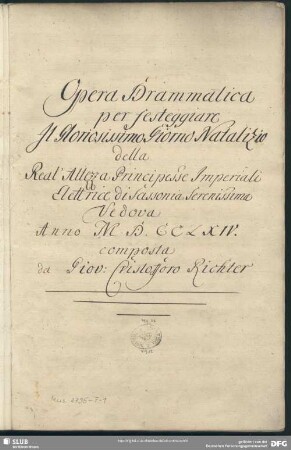 Opera Drammatica
per festeggiare
Il Gloriosissimo Giorno Natalizio
della
Real Altezza Principesse Imperiali
Elettrice di Sassonia Serenissima
Vedova
Anno M D. CCLXIV.
composta
da Giov: Cristofforo Richter
SLUB
DFG